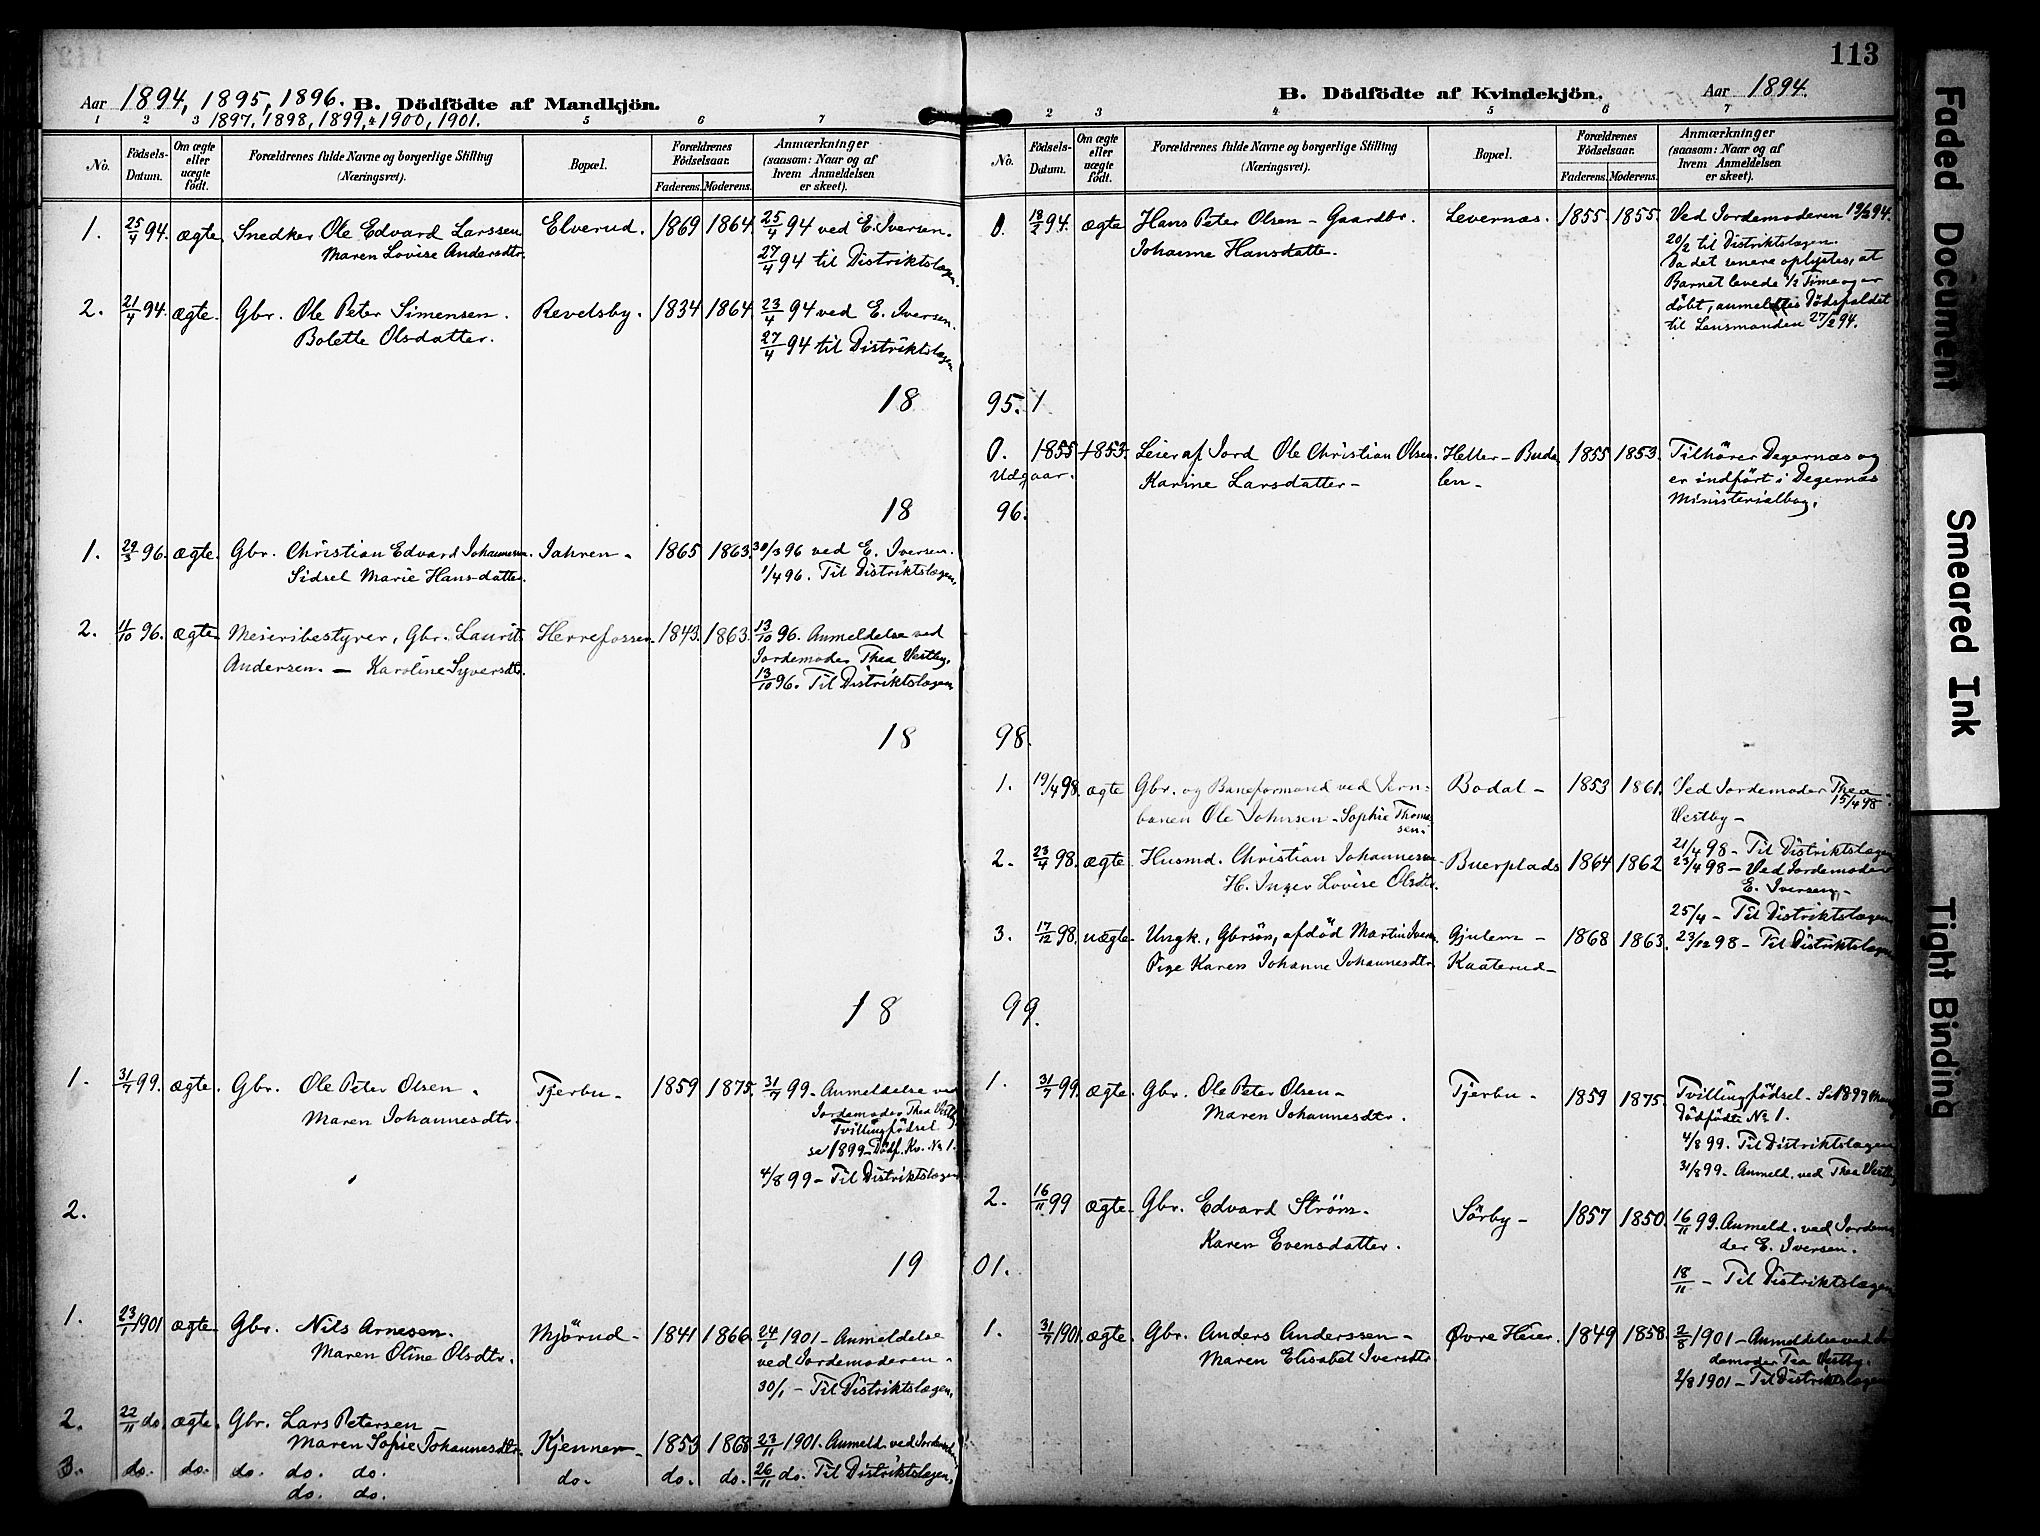 Aar 1894, 1895, 1896. B. Dödfödte af Mandkjön.
1897, 1898, 1899, 1900, 1901.
1 2 3 4 5 6 7
No. Födsels-Datum. Om ægte eller uægte födt. Forældrenes fulde Navne og borgerlige Stilling (Næringsvei). Bopæl. Forældrenes Födselsaar. Faderens. Moderens. Anmærkninger (saasom: Naar og af hvem Anmeldelsen er skeet).
1. 25/4 94. ægte Snedker Ole Edvard Larssen Elverud. 1869 1864 25/4 94 ved E. Iversen.
Maren Lovise Andersdtr. 27/4 94 til Distriktslægen.
2. 21/4 94. ægte. Gbr. Ole Peter Simensen. Revelsby. 1834 1864 23/4 94 ved E. Iversen.
Bolette Olsdatter. 27/4 94 til Distriktslægen
18
18
1. 29/3 96. ægte. Gbr. Christian Edvard Johannesen. Jahren- 1865 1863. 30/3 96 ved E. Iversen.
Sidsel Marie Hansdatter. 1/4 96. Til Distriktslægen.
2. 11/10 96. ægte. Meieribestyrer, Gbr. Laurits Herrefossen. 1843. 1863. 13/10 96. Anmeldelse ved
Andersen. - Karoline Syversdtr. Jordemoder Thea Vestby.
13/10 96. Til Distriktslægen
18
18
1. 31/7 99. ægte. Gbr. Ole Peter Olsen Tjerbu- 1859 1875. 31/7 99. Anmeldelse ved
Maren Johannesdtr. Jordemoder Thea Vestby.
Tvillingfödsel
se 1899-Dödf. Kv. No 1.
4/8 99- Til Distriktslægen
2.
19
1. 23/1 1901 ægte. Gbr. Nils Arnesen. Mjörud- 1841 1866. 24/1 1901- Anmeldelse
Maren Oline Olsdtr. ved Jordemoderen-
30/1 - Til Distriktslægen.
2. 22/11 do. ægte. Gbr. Lars Petersen
Maren Sofie Johannesdtr. Kjenner- 1853 1868 23/11 1901. Anmeld. ved Jordemoder
3. do. do. do. do. do. do. do. do. 26/11 do. Til Distriktslægen.
do. do.
113
B. Dödfödte af Kvindekjön. Aar 1894.
2 3 4 5 6 7
No. Födsels-Datum. Om ægte eller uægte födt. Forældrenes fulde Navne og borgerlige Stilling (Næringsvei). Bopæl. Forældrenes Födselsaar. Faderens. Moderens. Anmærkninger (saasom: Naar og af hvem Anmeldelsen er skeet).
0. 18/2 94. ægte Hans Peter Olsen - Gaardbr. Levernæs. 1855 1855. Ved Jordemoderen 19/2 94.
Johanne Hansdatter. 20/2 til Distriktslægen.
Da det senere oplystes, at
Barnet levede 1/2 Time og er
döbt, anmeldtes Dödsfaldet
til Lensmanden 27/2 94.
95. 1
0. 1855 1853. Leier af Jord Ole Christian Olsen. Heller-Budalen- 1855 1853. Tilhörer Degernæs og
Udgaar. Karine Larsdatter- er indfört i Degernæs
Ministerialbog.
96.
98.
1. 19/4 98. ægte Gbr. og Baneformand ved Jern- Bodal- 1853 1861. Ved Jordemoder Thea
banen Ole Johnsen - Sophie Thomasen. Vestby- 15/4 98
21/4 98- Til Distriktslægen
2. 23/4 98. ægte Husmd. Christian Johannesen Buerplads 1864 1862 23/4 98- Ved Jordemoder
H. Inger Lovise Olsdtr. E. Iversen-
25/4- Til Distriktslægen
3. 17/12 98. uægte- Ungk., Gbrsön, afdöd Martin Iversen. Gjulem- 1868 1863. 23/12 98- Til Distriktslægen
Pige Karen Johanne Johannesdtr. Kaaterud-
99.
1. 31/7 99. ægte. Gbr. Ole Peter Olsen- Tjerbu- 1859 1875. Tvillingfödsel- Se 1899 Mand
Maren Johannesdtr. Dödfödte No 1.
4/8 99. Til Distriktslægen
31/8 99. Anmeld. ved Thea Vestby
2. 16/11 99 ægte. Gbr. Edvard Ström. Sörby- 1857 1850. 16/11 99. Anmeld. ved Jordemo
Karen Evensdatter. der E. Iversen.
01. 18/11 - Til Distriktslægen
1. 31/7 1901. ægte. Gbr. Anders Anderssen- Øvre Heier. 1849 1858. 2/8 1901- Anmeldelse ved Jor
Maren Elisabet Iversdtr. demoder Tea Vestby.
2/8 1901- Til Distriktslægen
Faded Document
Smeared Ink
Tight Binding